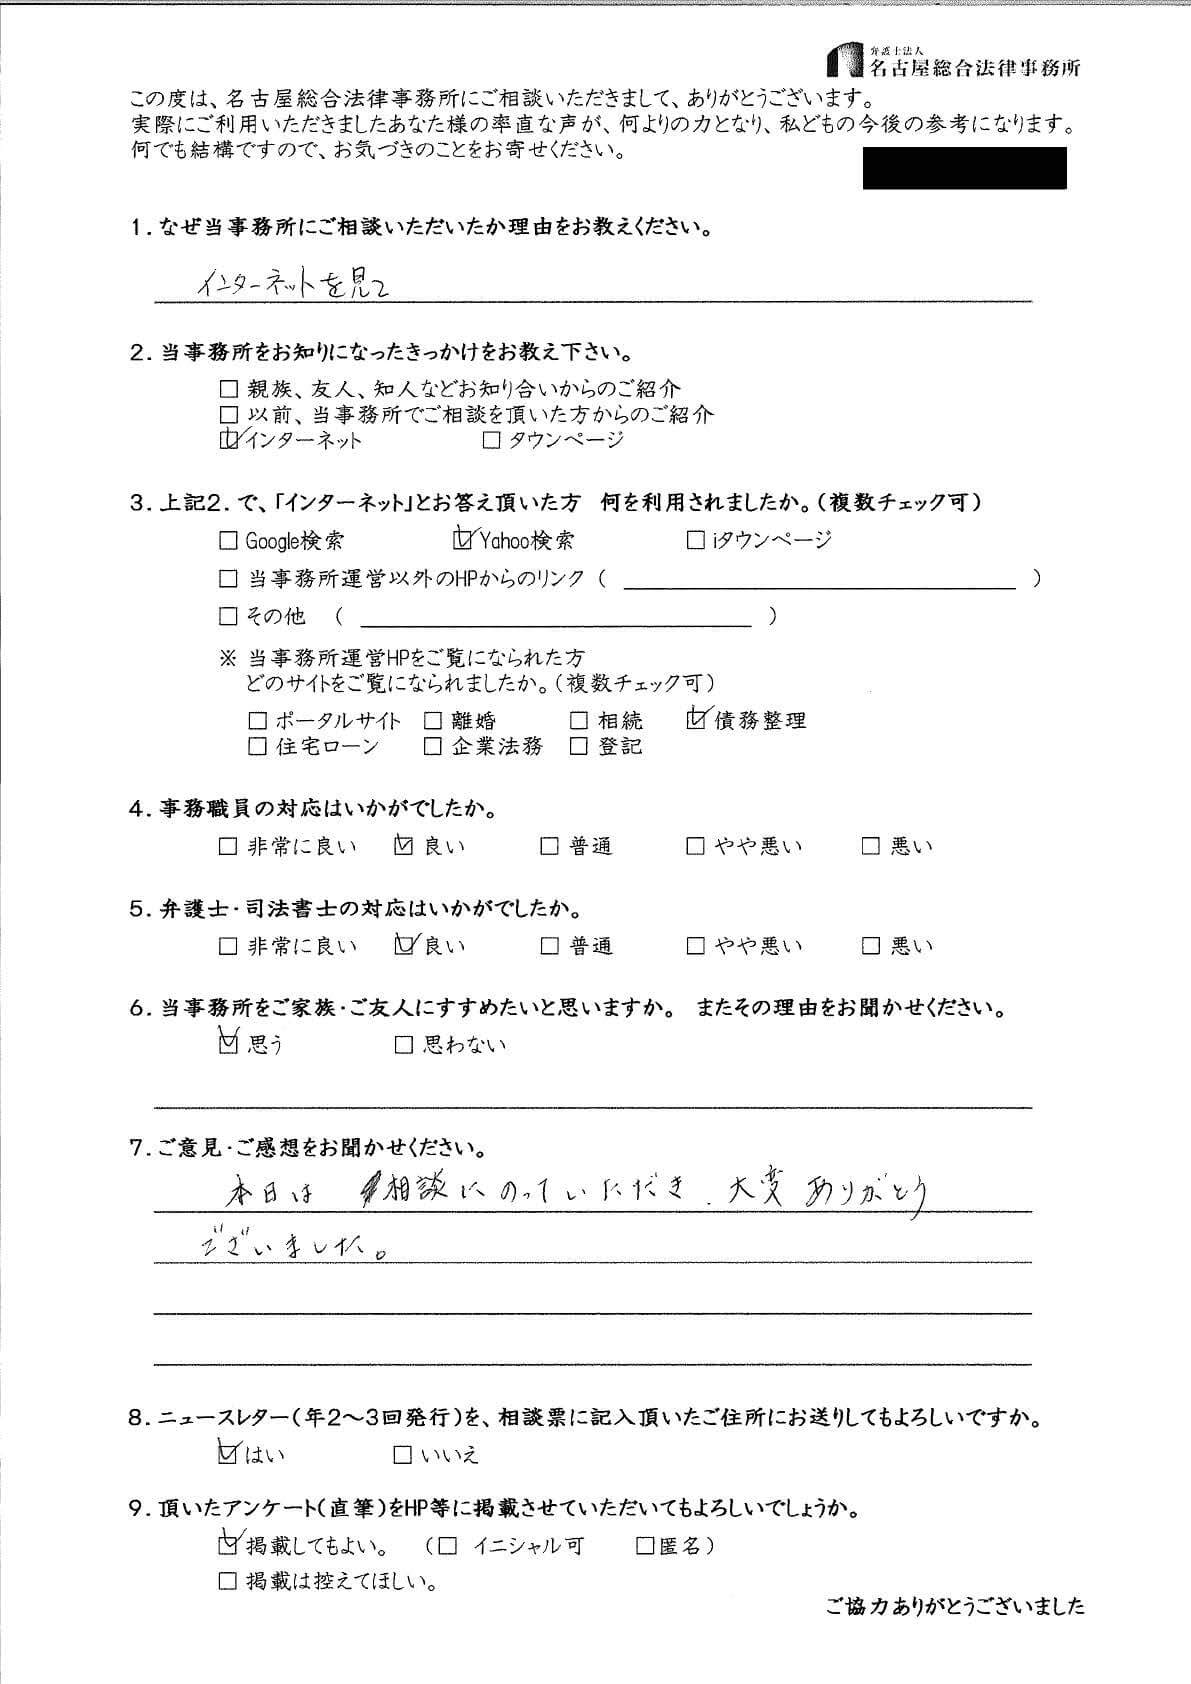 弁護士法人
名古屋総合法律事務所
この度は、名古屋総合法律事務所にご相談いただきまして、ありがとうございます。
実際にご利用いただきましたあなた様の率直な声が、何よりの力となり、私どもの今後の参考になります。
何でも結構ですので、お気づきのことをお寄せください。
1．なぜ当事務所にご相談いただいたか理由をお教えください。
インターネットを見て
2．当事務所をお知りになったきっかけをお教え下さい。
□ 親族、友人、知人などお知り合いからのご紹介
□ 以前、当事務所でご相談を頂いた方からのご紹介
☑ インターネット □ タウンページ
3．上記2．で、「インターネット」とお答え頂いた方　何を利用されましたか。（複数チェック可）
□ Google検索 ☑ Yahoo検索 □ iタウンページ
□ 当事務所運営以外のHPからのリンク（　　　　）
□ その他　（　　　　）
※ 当事務所運営HPをご覧になられた方
どのサイトをご覧になられましたか。（複数チェック可）
□ ポータルサイト □ 離婚 □ 相続 ☑ 債務整理
□ 住宅ローン □ 企業法務 □ 登記
4．事務職員の対応はいかがでしたか。
□ 非常に良い ☑ 良い □ 普通 □ やや悪い □ 悪い
5．弁護士・司法書士の対応はいかがでしたか。
□ 非常に良い ☑ 良い □ 普通 □ やや悪い □ 悪い
6．当事務所をご家族・ご友人にすすめたいと思いますか。　またその理由をお聞かせください。
☑ 思う □ 思わない
7．ご意見・ご感想をお聞かせください。
本日は 相談にのっていただき、大変ありがとう
ございました。
8．ニュースレター（年2～3回発行）を、相談票に記入頂いたご住所にお送りしてもよろしいですか。
☑ はい □ いいえ
9．頂いたアンケート（直筆）をHP等に掲載させていただいてもよろしいでしょうか。
☑ 掲載してもよい。　（□ イニシャル可　□匿名）
□ 掲載は控えてほしい。
ご協力ありがとうございました